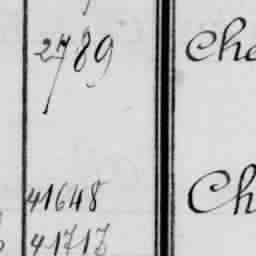 2789 Cha
41648 Ch
41717